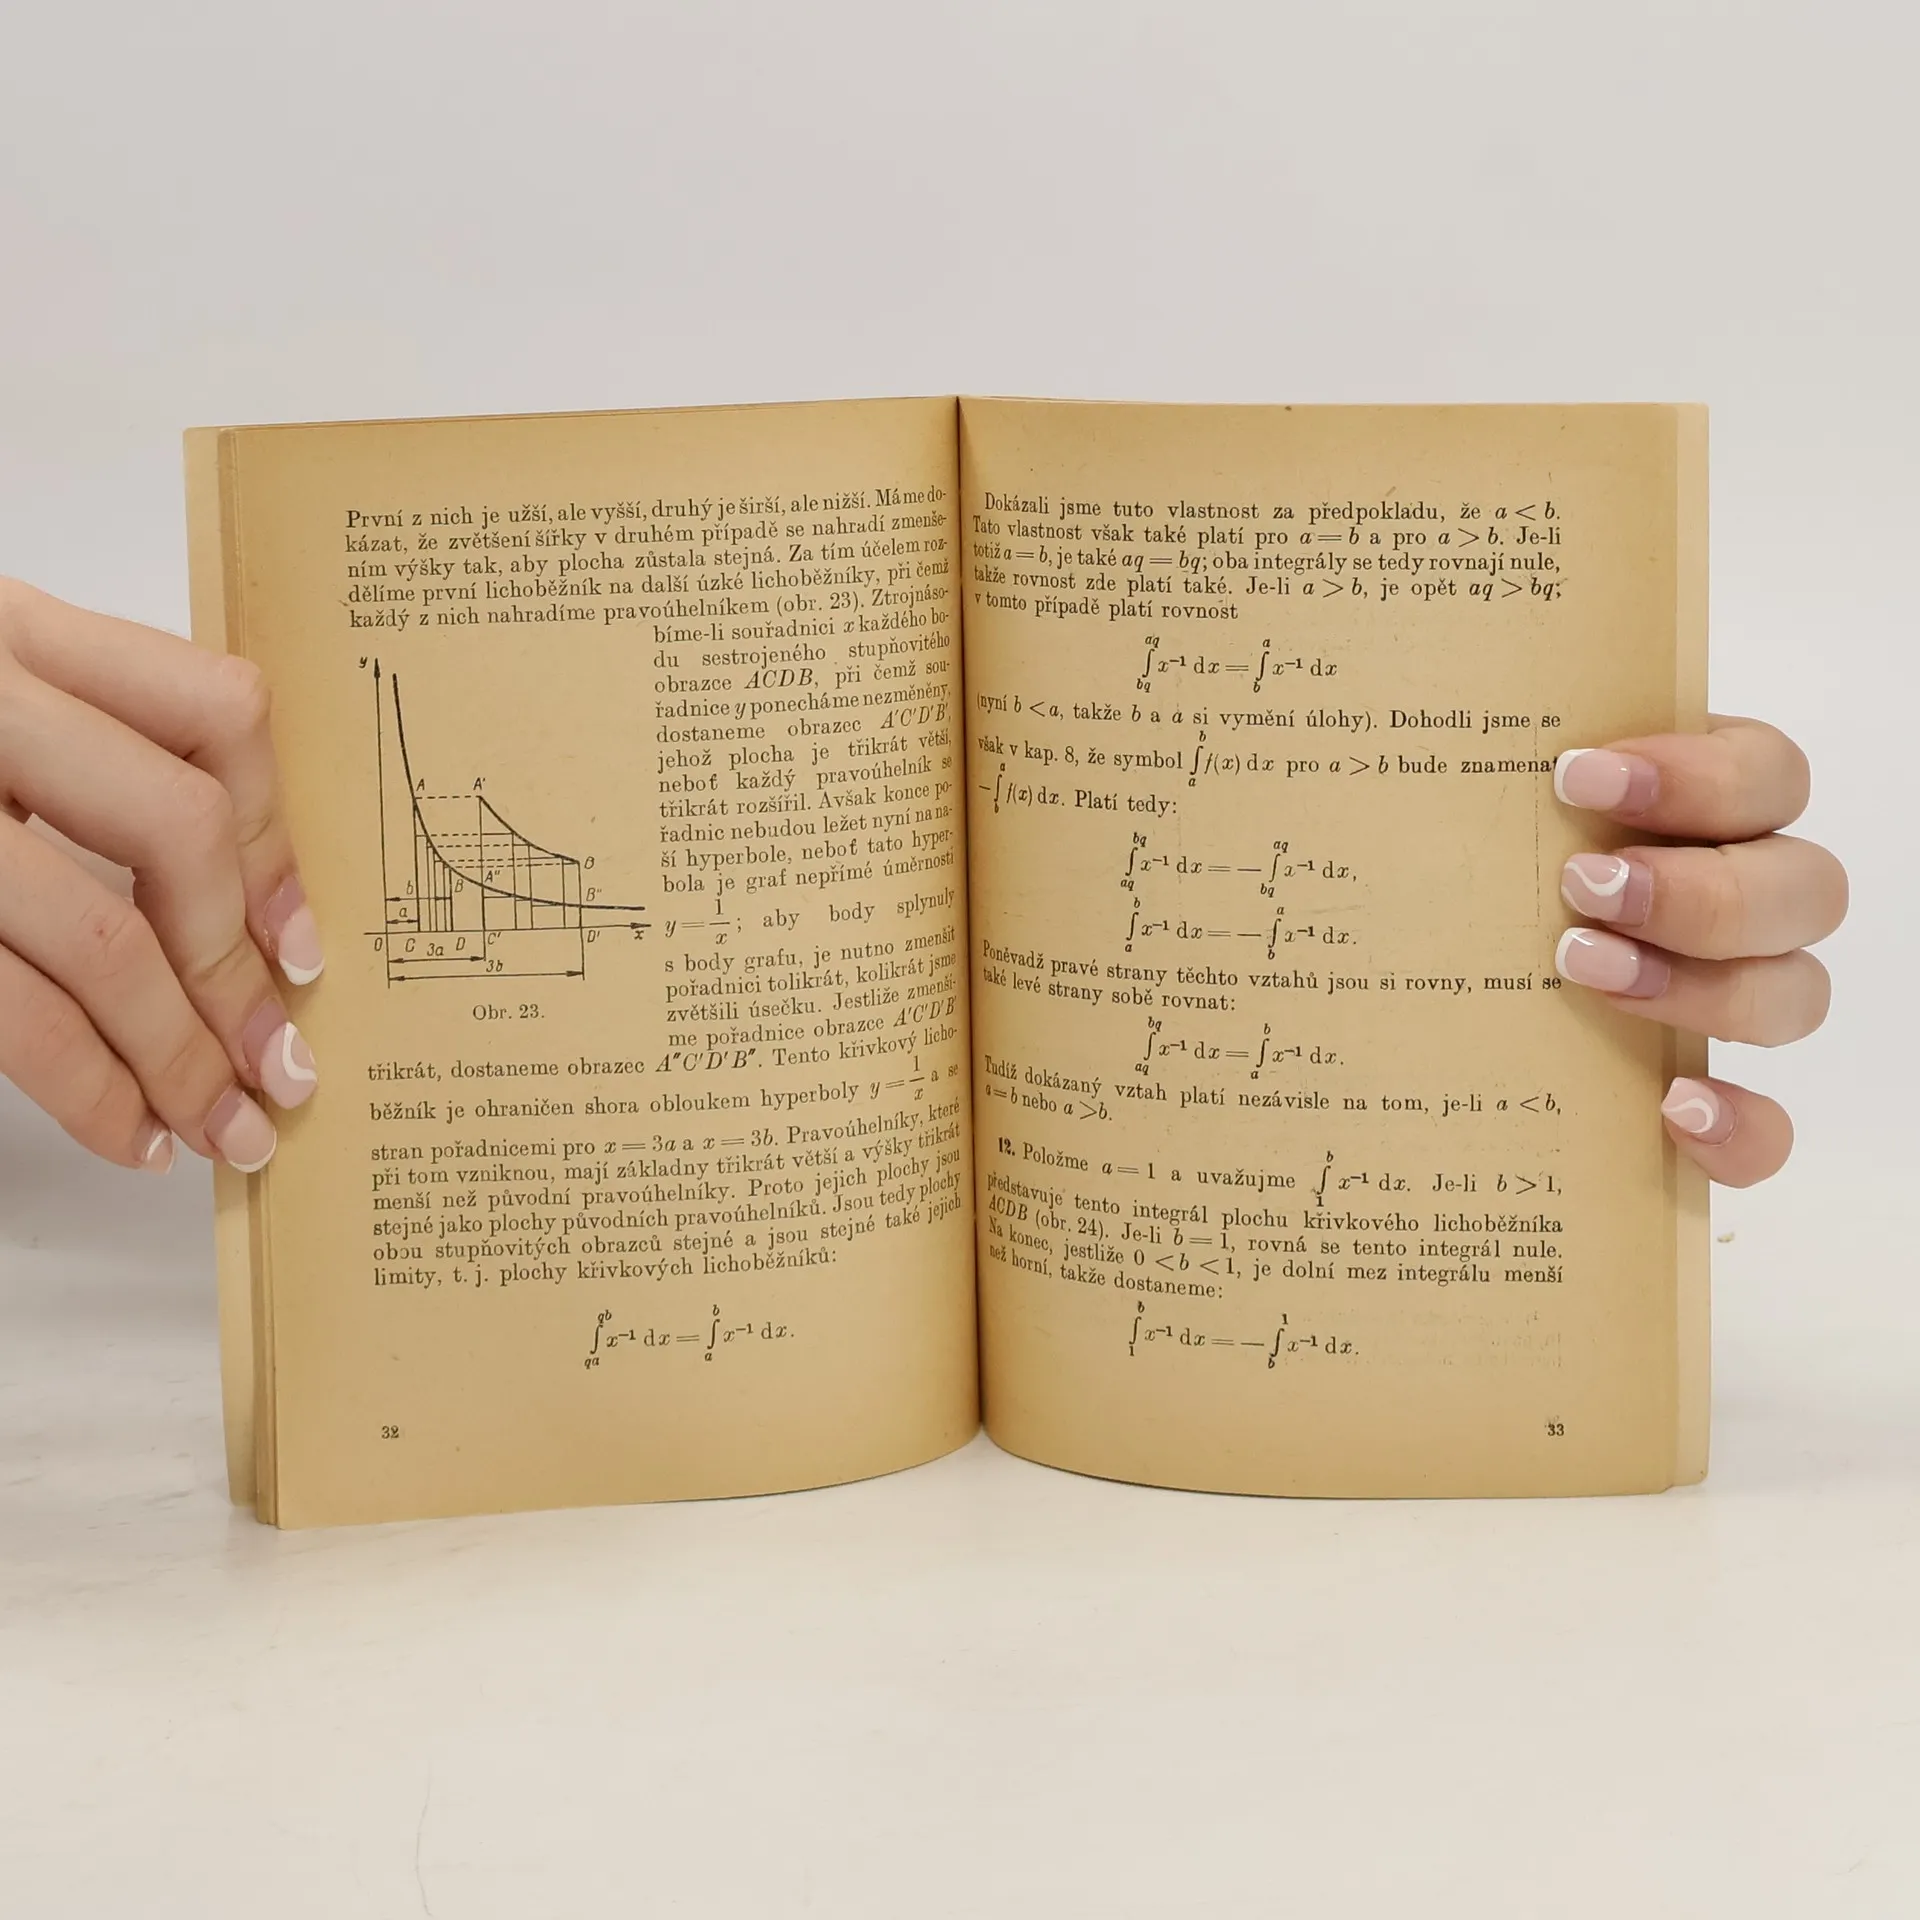 První z nich je užší, ale vyšší, druhý je širší, ale nižší. Máme do-
kázat, že zvětšení šířky v druhém případě se nahradí zmenše-
ním výšky tak, aby plocha zůstala stejná. Za tím účelem roz-
dělíme první lichoběžník na další úzké lichoběžníky, při čemž
každý z nich nahradíme pravoúhelníkem (obr. 23). Ztrojnáso-
bíme-li souřadnici x každého bo-
du sestrojeného stupňovitého
obrazce ACDB, při čemž sou-
řadnice y ponecháme nezměněny,
dostaneme obrazec A'C'D'B',
jehož plocha je třikrát větší,
neboť každý pravoúhelník se
třikrát rozšířil. Avšak konce po-
řadnic nebudou ležet nyní na na-
ší hyperbole, neboť tato hyper-
bola je graf nepřímé úměrnosti
y = 1/x ; aby body splynuly
s body grafu, je nutno zmenšit
pořadnici tolikrát, kolikrát jsme
zvětšili úsečku. Jestliže zmenší-
me pořadnice obrazce A'C'D'B'
y
A A'
B
b B A" B"
a
0 C 3a D C' D' x
3b
Obr. 23.
třikrát, dostaneme obrazec A"C'D'B". Tento křivkový licho-
běžník je ohraničen shora obloukem hyperboly y = 1/x a se
stran pořadnicemi pro x = 3a a x = 3b. Pravoúhelníky, které
při tom vzniknou, mají základny třikrát větší a výšky třikrát
menší než původní pravoúhelníky. Proto jejich plochy jsou
stejné jako plochy původních pravoúhelníků. Jsou tedy plochy
obou stupňovitých obrazců stejné a jsou stejné také jejich
limity, t. j. plochy křivkových lichoběžníků:
∫_{qa}^{qb} x⁻¹ dx = ∫_{a}^{b} x⁻¹ dx.
32
Dokázali jsme tuto vlastnost za předpokladu, že a < b.
Tato vlastnost však také platí pro a = b a pro a > b. Je-li
totiž a = b, je také aq = bq; oba integrály se tedy rovnají nule,
takže rovnost zde platí také. Je-li a > b, je opět aq > bq;
v tomto případě platí rovnost
∫_{bq}^{aq} x⁻¹ dx = ∫_{b}^{a} x⁻¹ dx
(nyní b < a, takže b a a si vymění úlohy). Dohodli jsme se
však v kap. 8, že symbol ∫_{a}^{b} f(x) dx pro a > b bude znamenat
−∫_{b}^{a} f(x) dx. Platí tedy:
∫_{aq}^{bq} x⁻¹ dx = −∫_{bq}^{aq} x⁻¹ dx,
∫_{a}^{b} x⁻¹ dx = −∫_{b}^{a} x⁻¹ dx.
Poněvadž pravé strany těchto vztahů jsou si rovny, musí se
také levé strany sobě rovnat:
∫_{aq}^{bq} x⁻¹ dx = ∫_{a}^{b} x⁻¹ dx.
Tudíž dokázaný vztah platí nezávisle na tom, je-li a < b,
a = b nebo a > b.
12. Položme a = 1 a uvažujme ∫_{1}^{b} x⁻¹ dx. Je-li b > 1,
představuje tento integrál plochu křivkového lichoběžníka
ACDB (obr. 24). Je-li b = 1, rovná se tento integrál nule.
Na konec, jestliže 0 < b < 1, je dolní mez integrálu menší
než horní, takže dostaneme:
∫_{1}^{b} x⁻¹ dx = −∫_{b}^{1} x⁻¹ dx.
33